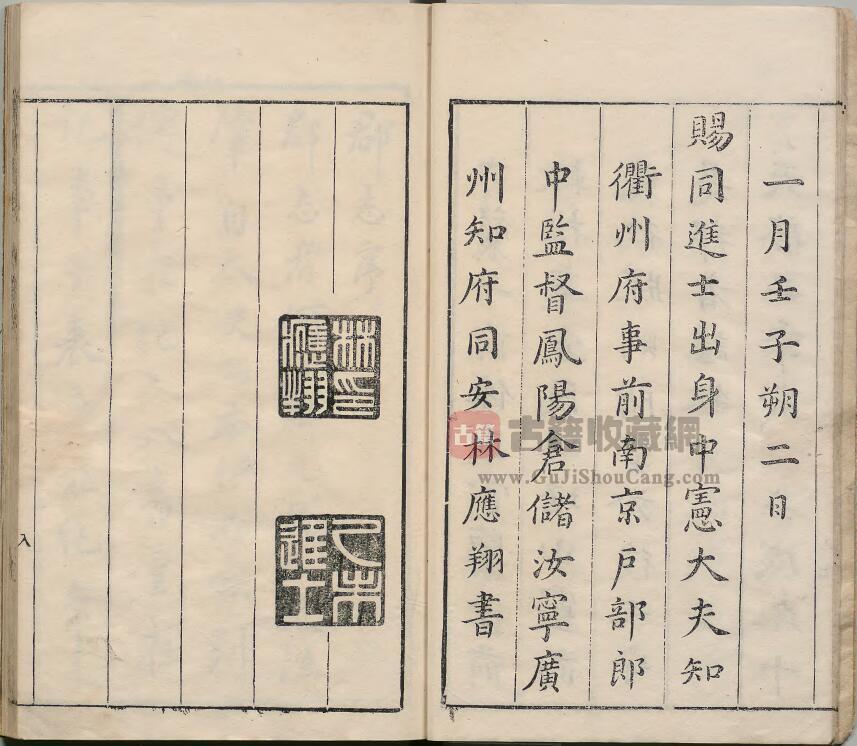 一月壬子朔二日
賜同進士出身中憲大夫知
衢州府事前南京戶部郎
中監督鳳陽倉儲汝寧廣
州知府同安林應翔書
林印應翔
乙未進士
八
古籍
古籍收藏網
www.GuJiShouCang.com